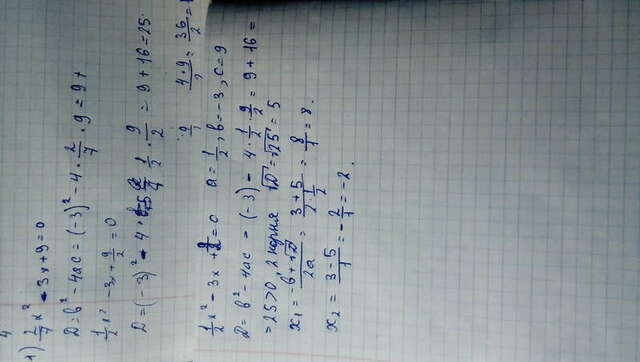 4
1) 2/7 x² - 3x + 9 = 0
D = b² - 4ac = (-3)² - 4 · 2/7 · 9 = 9 +
1/2 x² - 3x + 9/2 = 0
D = (-3)² - 4 · 1/2 · 9/2 = 9 + 16 = 25
9/2 4·9/2 = 36/2 =
1/2 x² - 3x + 9/2 = 0 a = 1/2, b = -3, c = 9
D = b² - 4ac = (-3) - 4 · 1/2 · 9/2 = 9 + 16 =
= 25 > 0, 2 корня √D = √25 = 5
x₁ = -b + √D / 2a = 3 + 5 / 2 · 1/2 = 8/1 = 8.
x₂ = 3 - 5 / 1 = - 2/1 = -2.